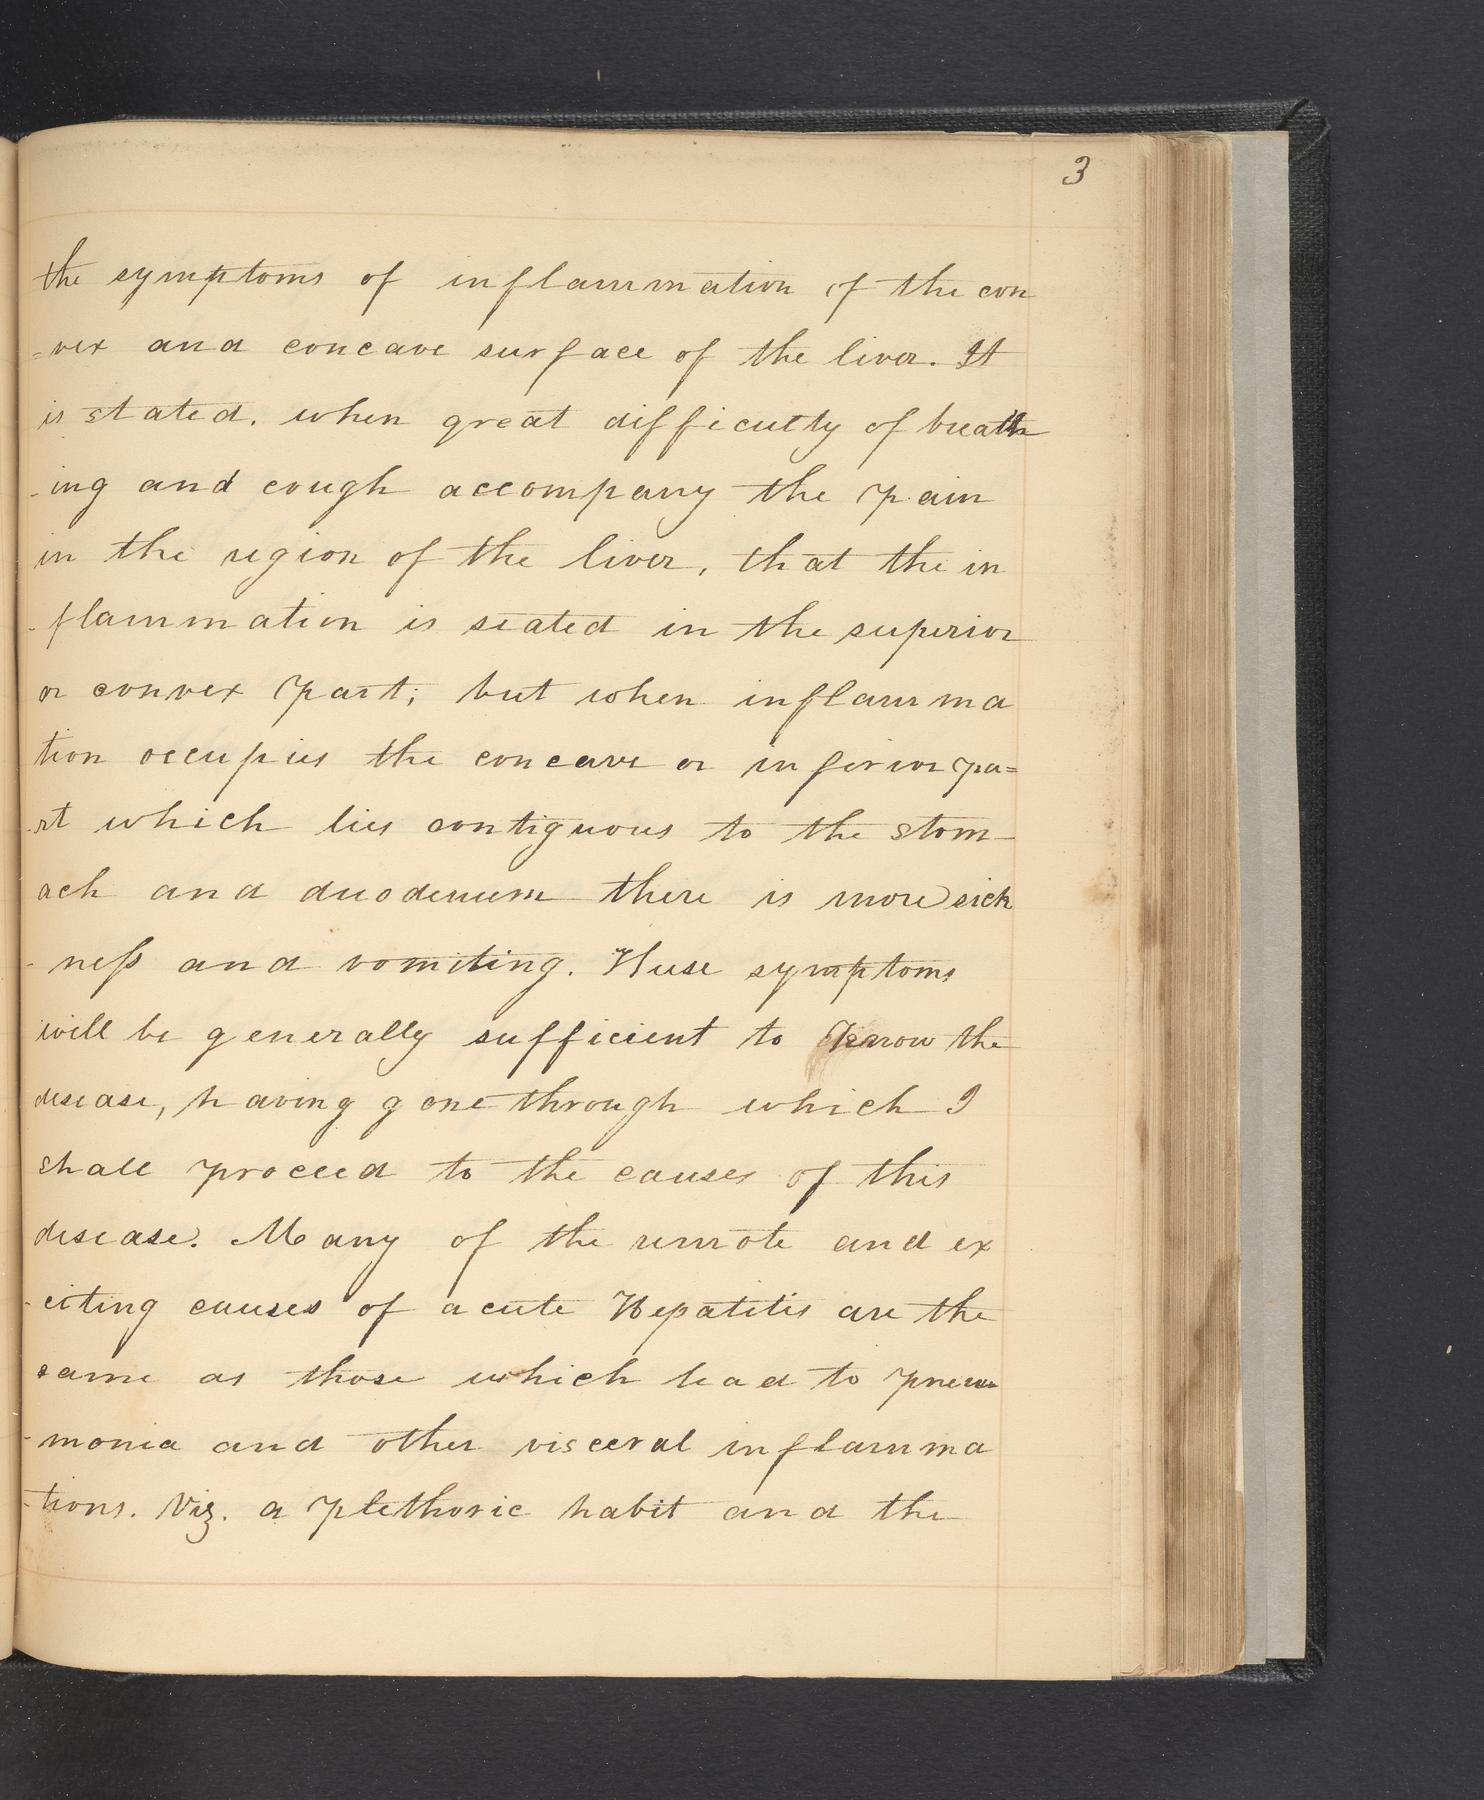 3
the symptoms of inflammation of the con
=vex and concave surface of the liver. It
is stated, when great difficulty of breath
-ing and cough accompany the pain
in the region of the liver, that the in
-flammation is seated in the superior
or convex part; but when inflamma
tion occupies the concave or inferior pa=
-rt which lies contiguous to the stom-
ach and duodenum there is more sick
-ness and vomiting. These symptoms
will be generally sufficient to know the
disease, having gone through which I
shall proceed to the causes of this
disease. Many of the remote and ex
-citing causes of acute Hepatitis are the
same as those which lead to pneu-
-monia and other visceral inflamma
-tions. Viz. a plethoric habit and the